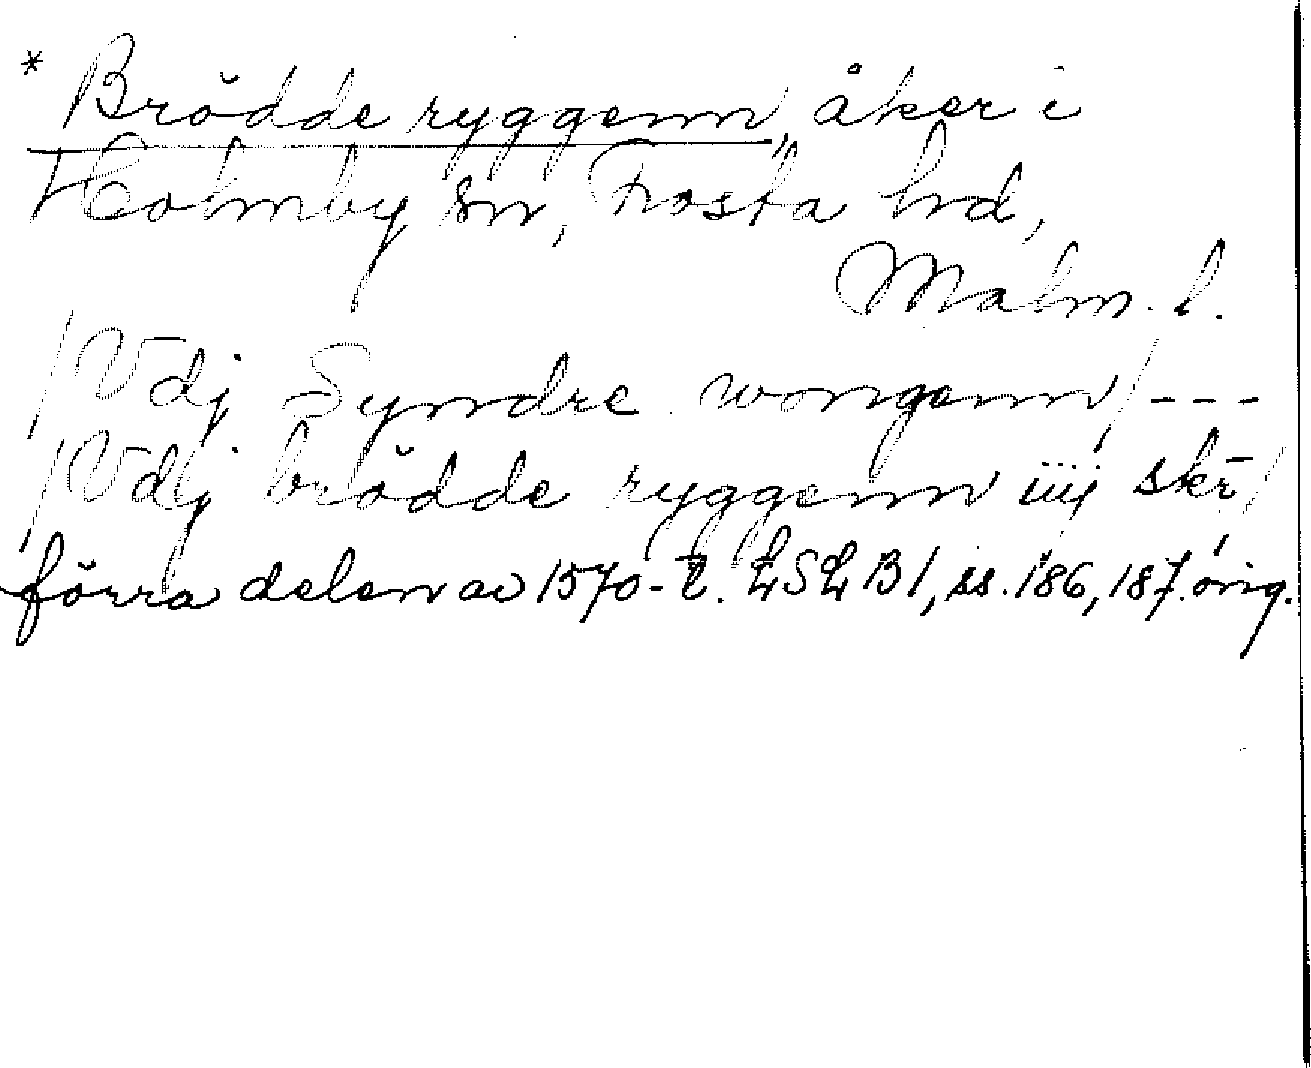 * Brödde ryggenn, åker i
Holmby sn, Frosta hrd,
Malm. l.
/Vdj Syndre wongenn/ ---
/Vdj brödde ryggenn iiij skr̄/
förra delen av 1570-t. LSL B1, ss. 186, 187. orig.